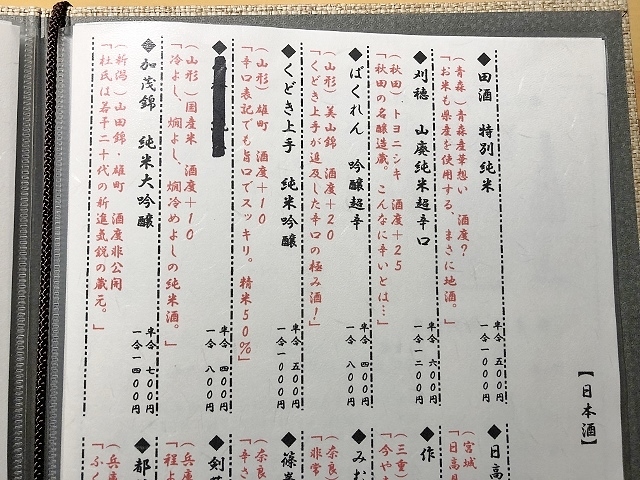 【日本酒】
◆田酒 特別純米
半合 五〇〇円
一合一〇〇〇円
(青森)青森産華想い 酒度?
「お米も県産を使用する、まさに地酒。」
◆刈穂 山廃純米超辛口
半合 六〇〇円
一合一二〇〇円
(秋田)トヨニシキ 酒度+25
「秋田の名醸造蔵。こんなに辛いとは…」
◆ばくれん 吟醸超辛
半合 四〇〇円
一合 八〇〇円
(山形)美山錦 酒度+20
「くどき上手が追及した辛口の極み酒!」
◆くどき上手 純米吟醸
半合 五〇〇円
一合一〇〇〇円
(山形)雄町 酒度+10
「辛口表記でも旨口でスッキリ。精米50%」
半合 四〇〇円
一合 八〇〇円
(山形)国産米 酒度+10
「冷よし、燗よし、燗冷めよしの純米酒。」
加茂錦 純米大吟醸
半合 七〇〇円
一合一四〇〇円
(新潟)山田錦・雄町 酒度非公開
「杜氏は若干二十代の新進気鋭の蔵元。」
◆日高
(宮城
「日高見
◆作
(三重)
「今や
◆みむ
(奈良)
「非常
◆篠峯
(奈良
「辛さ
◆剣菱
(兵庫
「程よ
◆都
(兵庫
「ふく